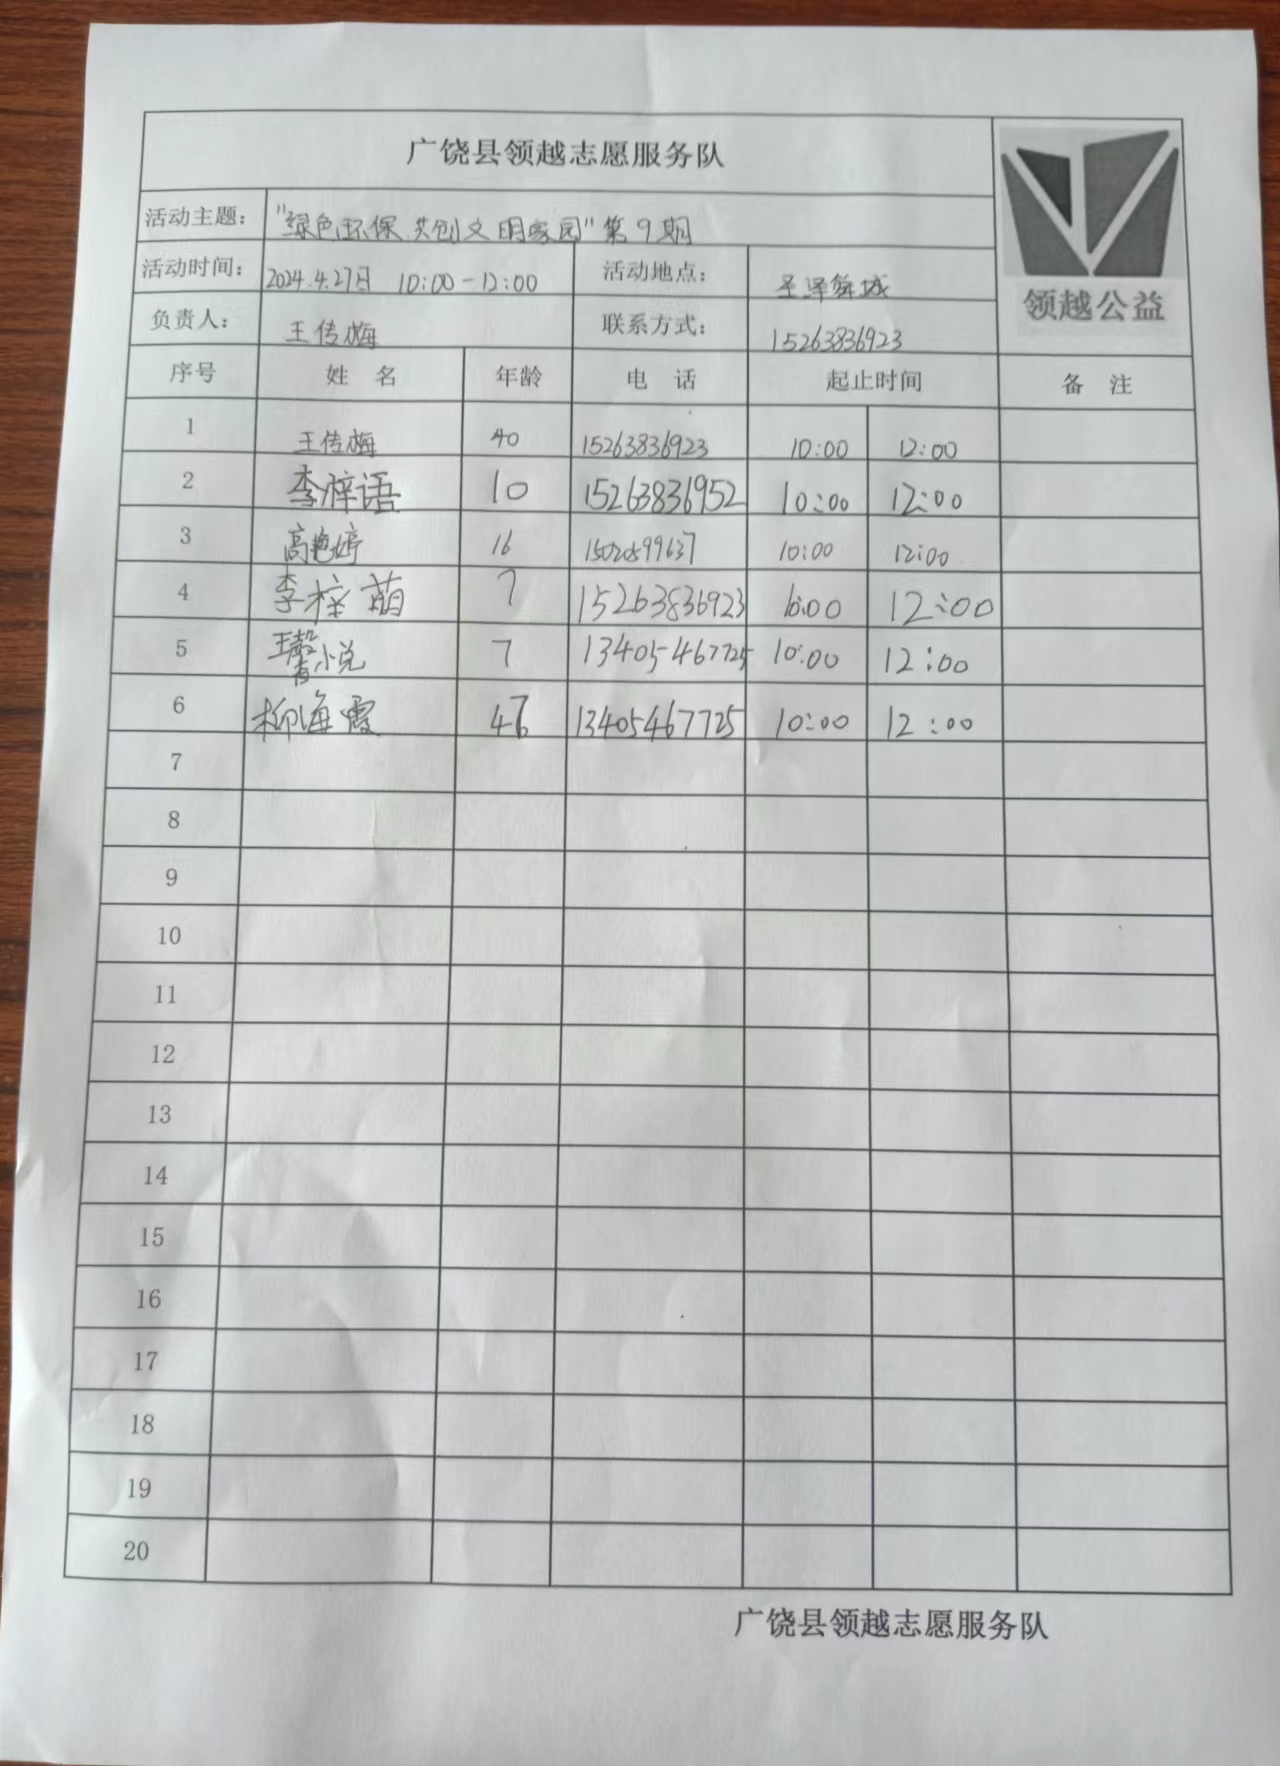 广饶县领越志愿服务队
领越公益
活动主题： "绿色环保 共创文明家园"第9期
活动时间： 2024.4.27日 10:00-12:00 活动地点： 圣泽舞城
负责人： 王传梅 联系方式： 15263836923
序号 姓 名 年龄 电 话 起止时间 备 注
1 王传梅 40 15263836923 10:00 12:00
2 李梓语 10 15263836952 10:00 12:00
3 高艳婷 16 15020599637 10:00 12:00
4 李梓萌 7 15263836923 10:00 12:00
5 王馨悦 7 13405467725 10:00 12:00
6 柳海霞 46 13405467725 10:00 12:00
7
8
9
10
11
12
13
14
15
16
17
18
19
20
广饶县领越志愿服务队